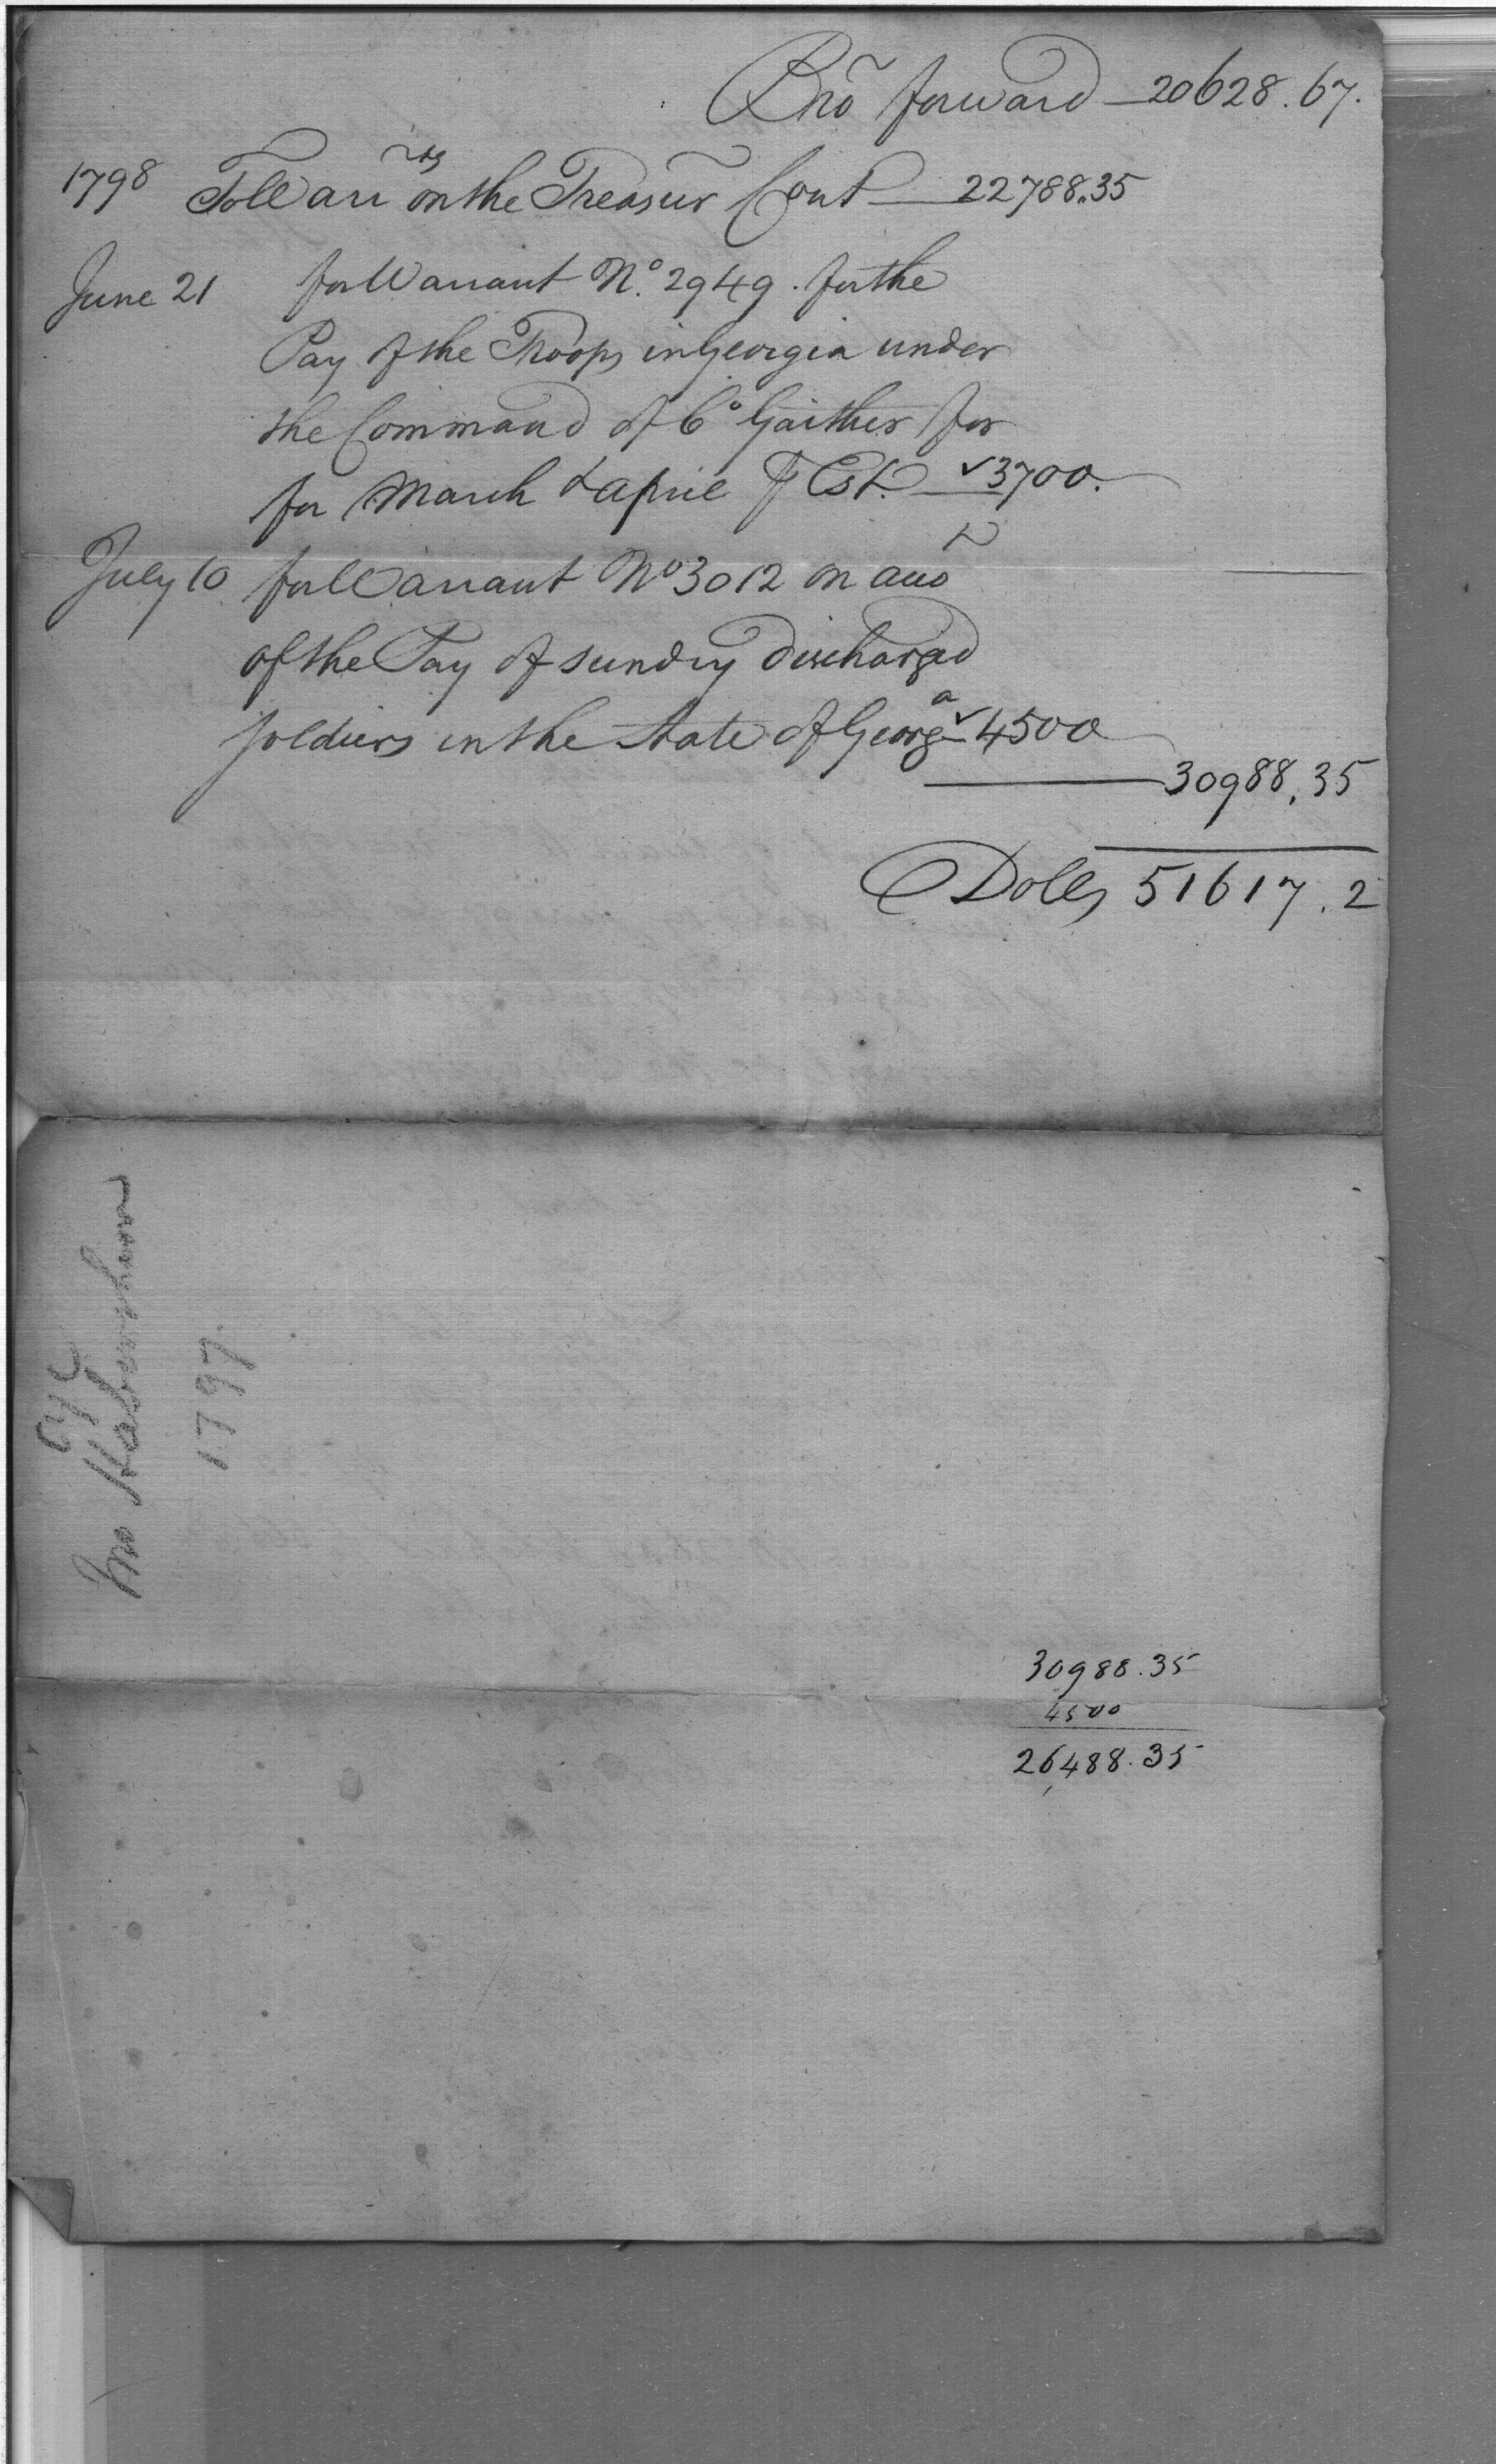 Bro forward — 20628.67.
1798 To Warrts on the Treasur Cont — 22788.35
June 21 for Warrant No. 2949. for the
Pay of the Troops in Georgia under
the Command of Co Gaither for
for March & April Est. — 3700.
July 10 for Warrant No 3012 on acco
of the Pay of sundry discharged
soldiers in the State of Georga 4500
— 30988.35
Dolls 51617.2
a/c
Mr Habersham
1797.
30988.35
4500
26488.35